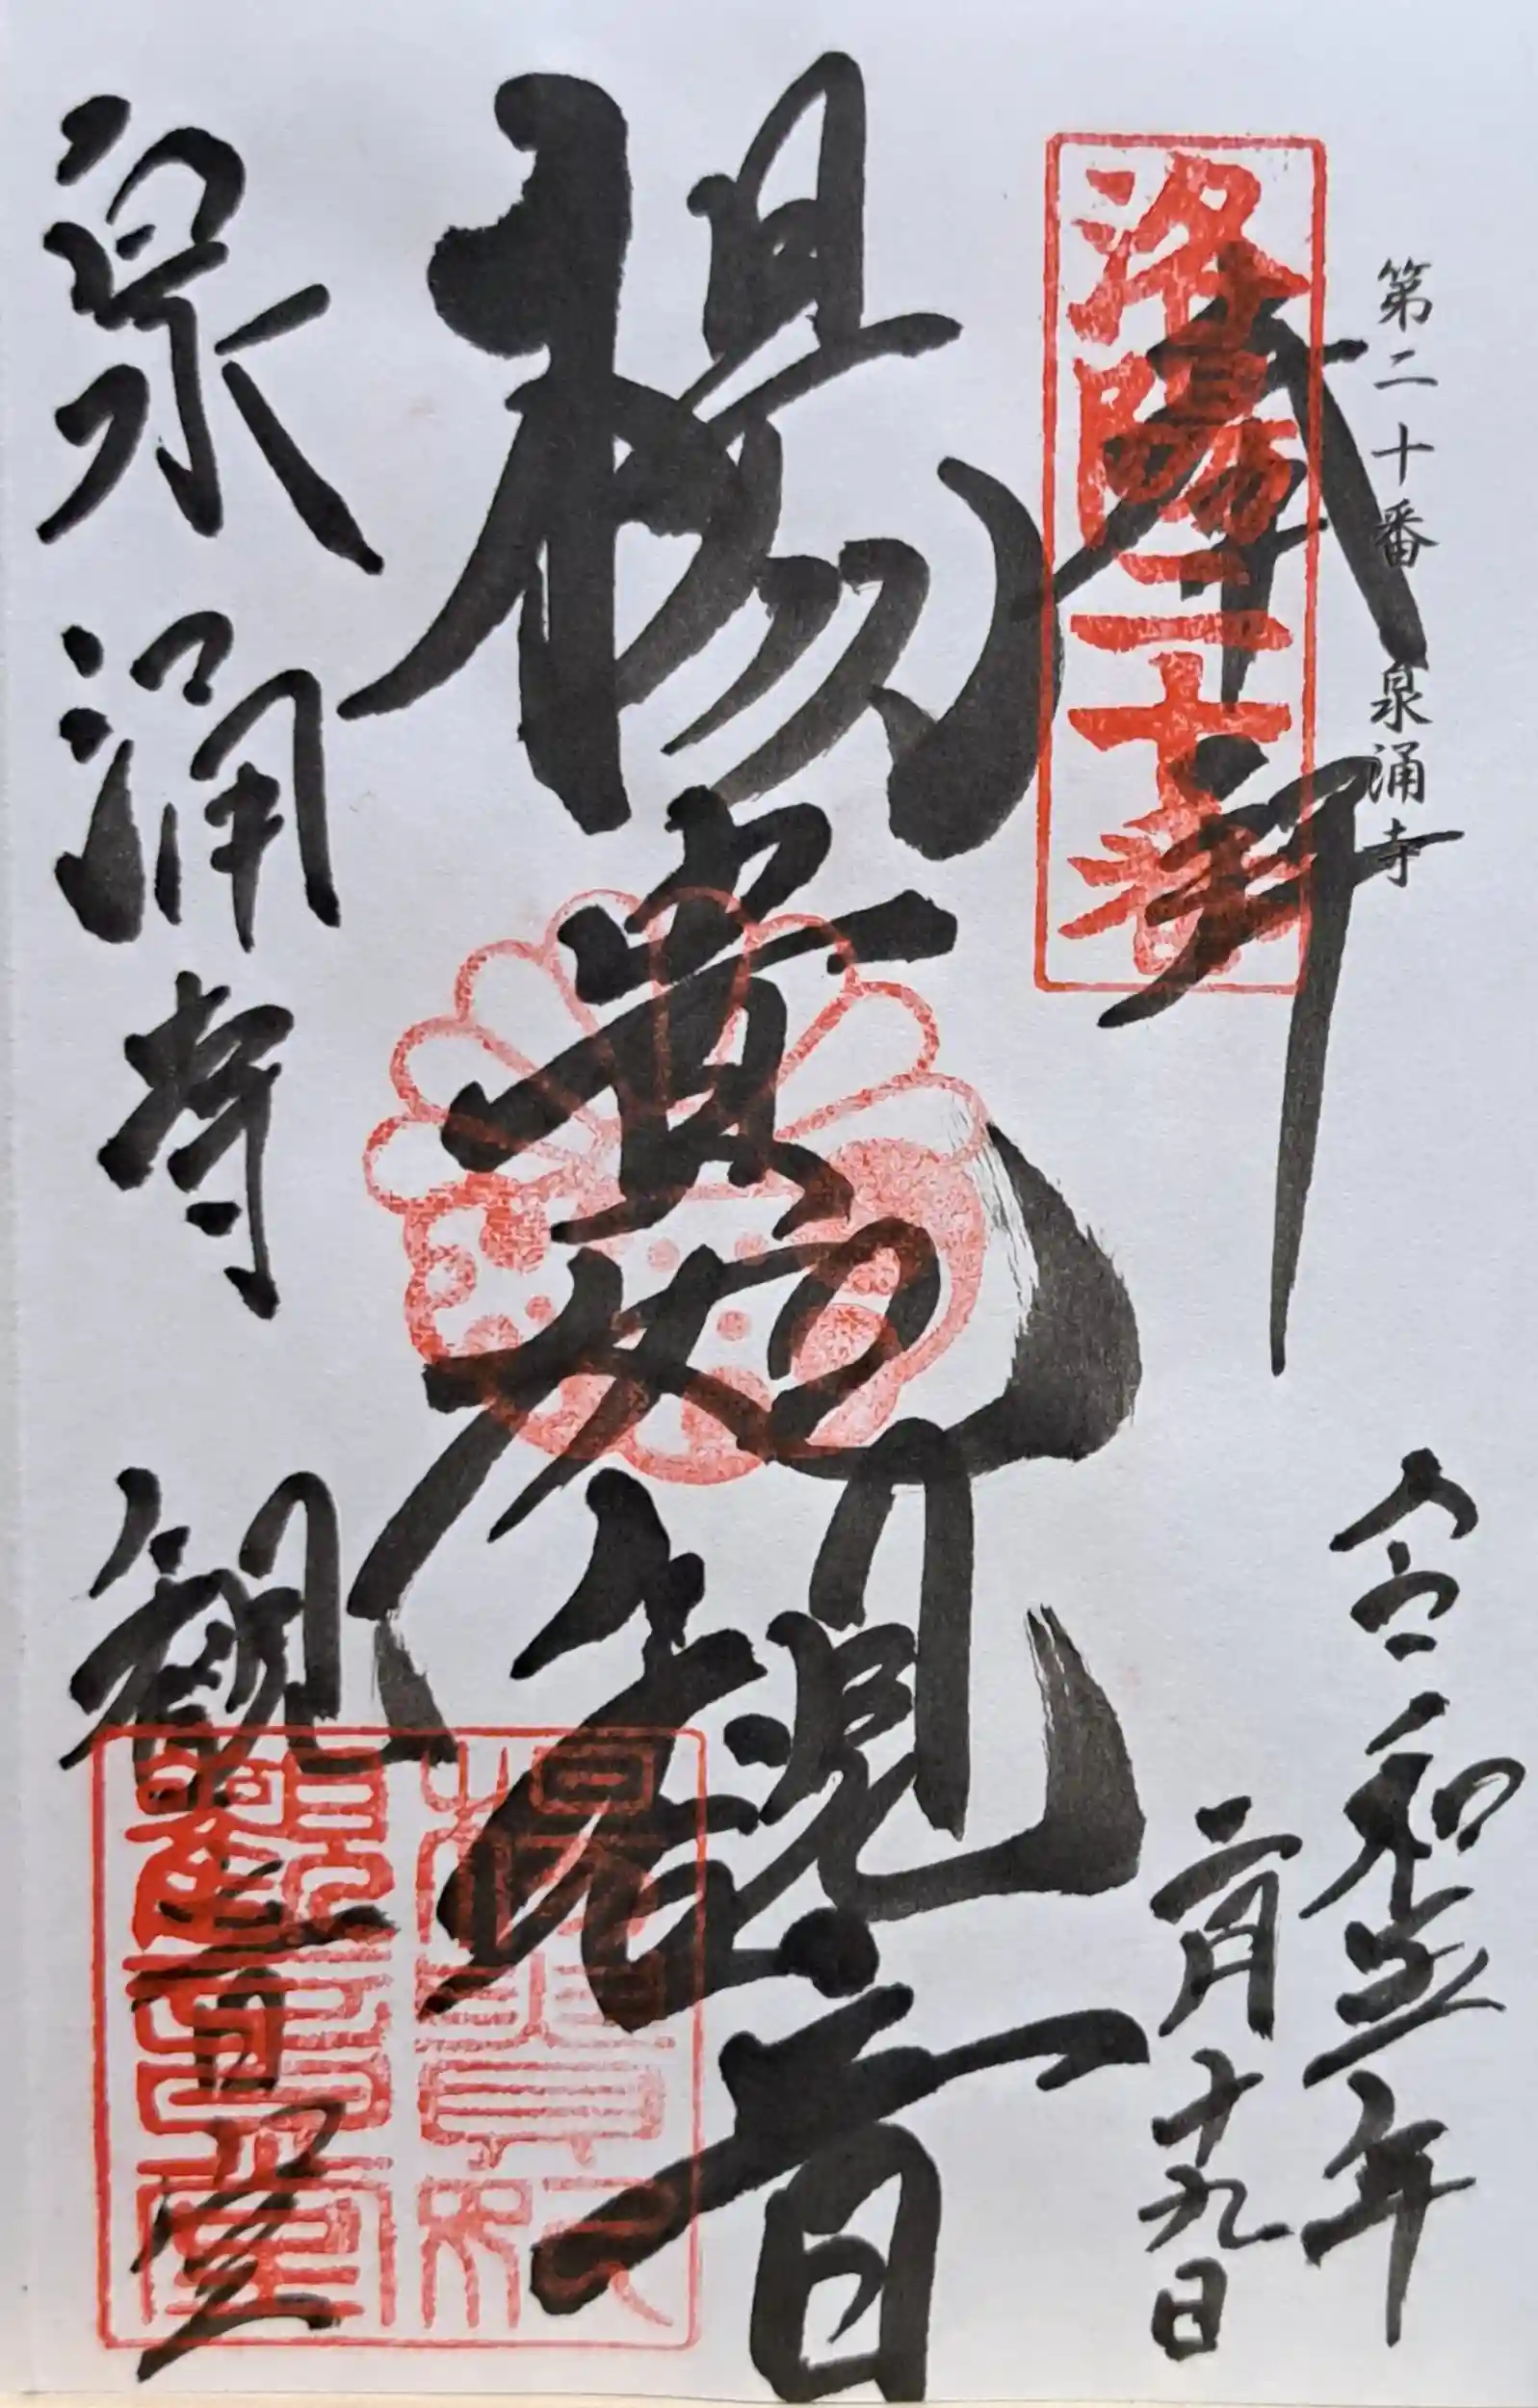 第二十番 泉涌寺
奉拝
洛陽二十番
令和五年
二月十九日
楊貴妃観音
泉涌寺 観音堂
楊貴妃
觀音堂